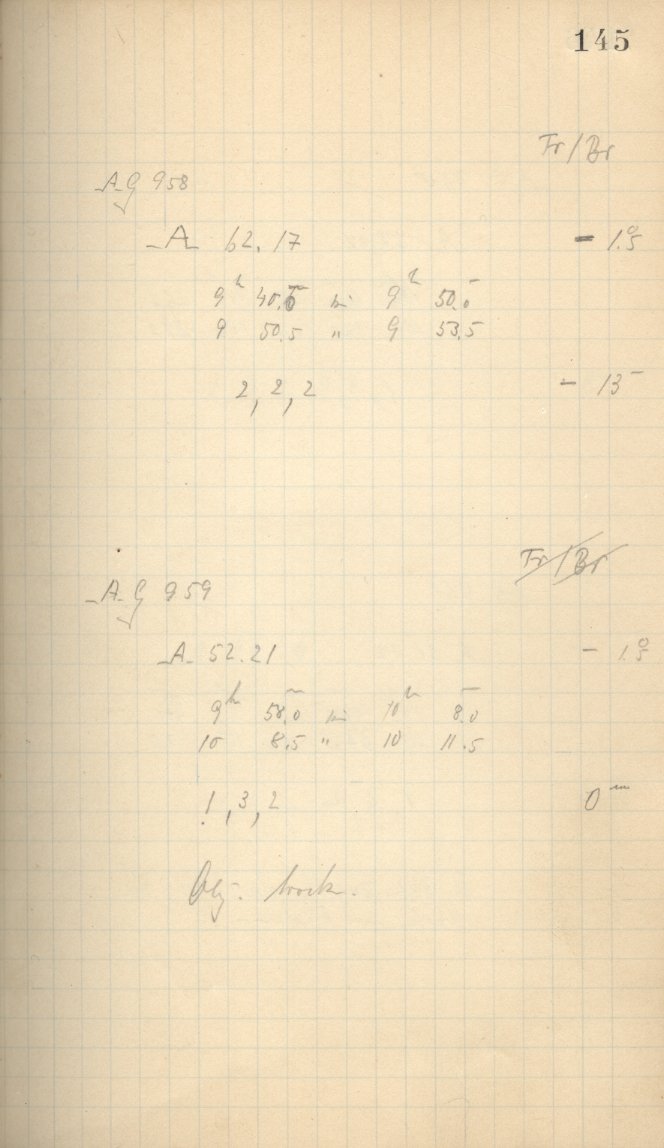 145
Fr/Br
AG 958
A 62.17 - 1.°5
9ʰ 40.ᵐ0 bis 9ʰ 50.ᵐ0
9 50.5 " 9 53.5
2, 2, 2 - 13ᵐ
Fr/Br
AG 959
A 52.21 - 1.°5
9ʰ 58.ᵐ0 bis 10ʰ 8.ᵐ0
10 8.5 " 10 11.5
1, 3, 2 0ᵐ
Obj. trock.